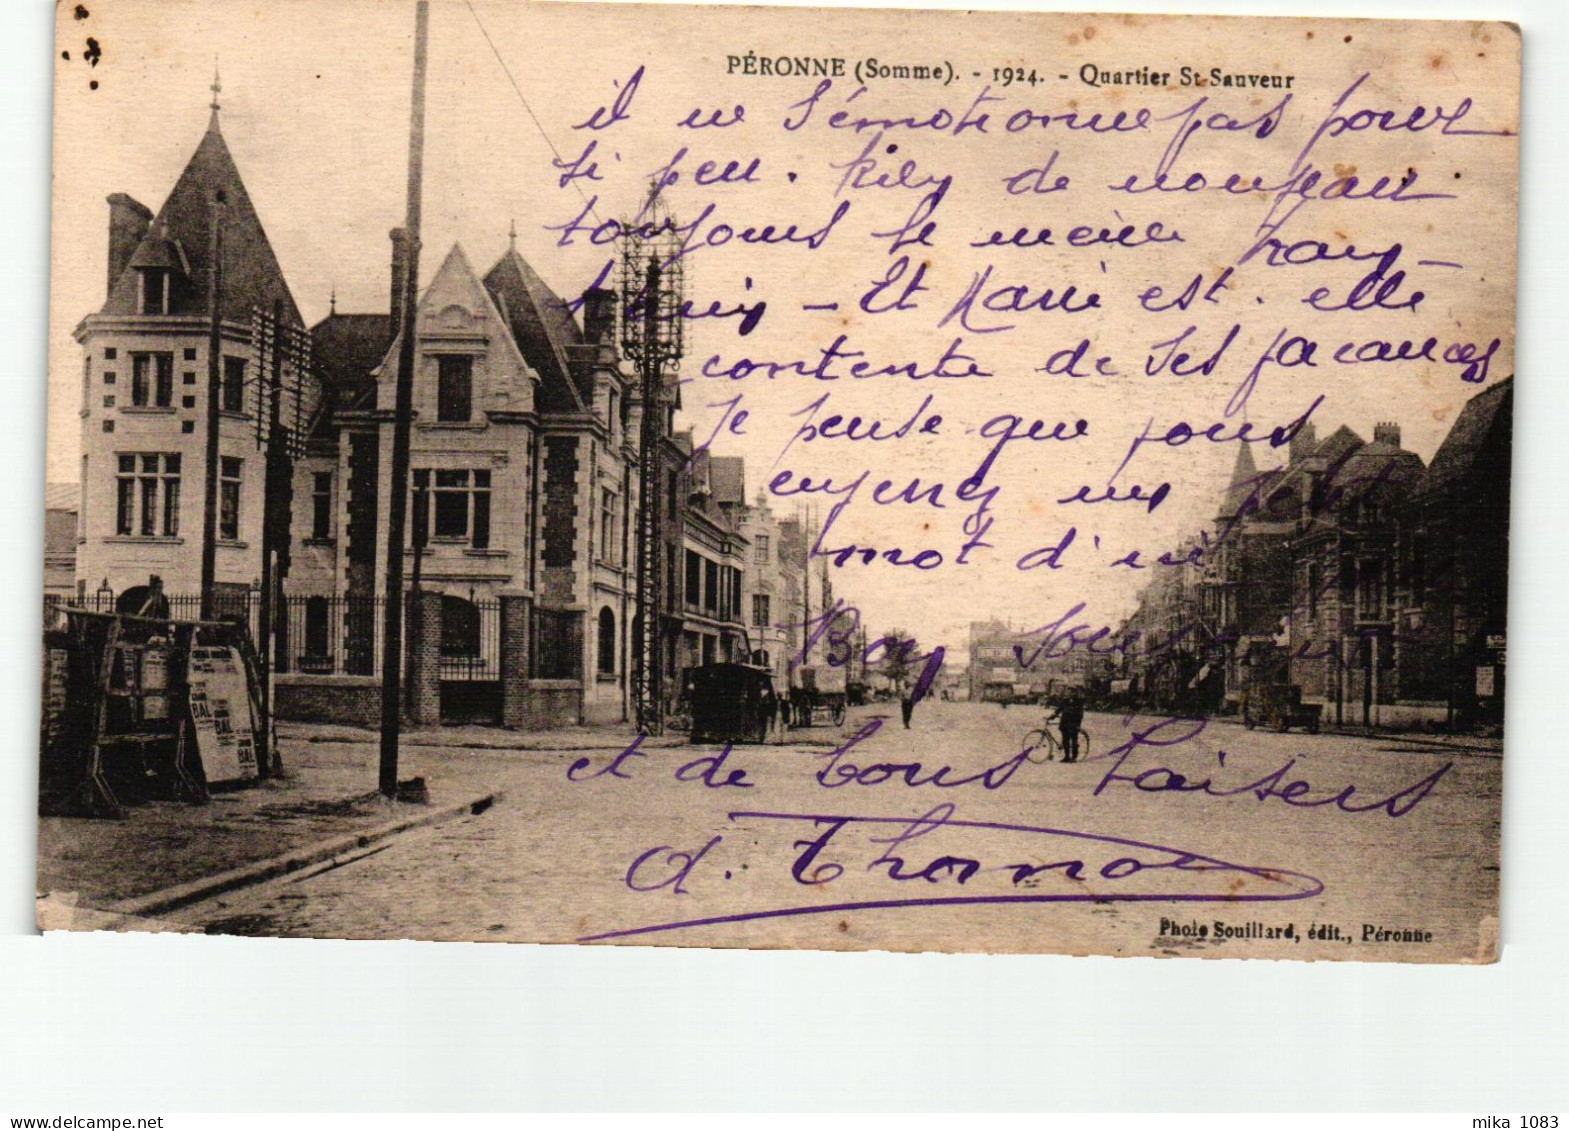 PÉRONNE (Somme). - 1924. - Quartier St-Sauveur
il ne s'émotionne pas pour
si peu. Rien de nouveau
toujours le même tran-
tran - Et Marie est-elle
contente de ses vacances
je pense que vous
enverrez un petit
mot d'ici
Bon souvenir
et de bons baisers
BAL
BAL
Photo Souillard, édit., Péronne
mika 1083